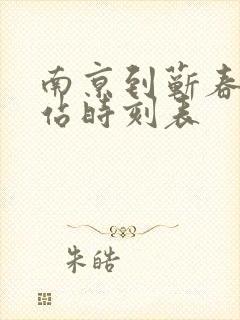 南京到蕲春
佔時刻表
朱皓